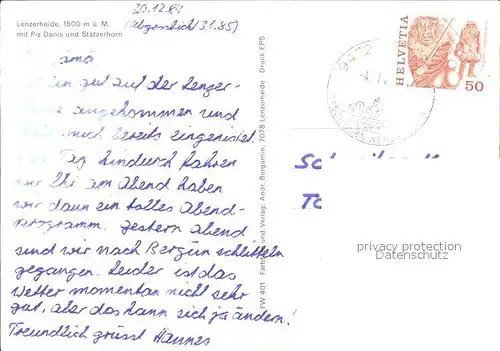 30.12.84
(Abgeschickt 3.1.85)
Lenzerheide, 1500 m ü. M.
mit Piz Danis und Stätzerhorn
gut auf der Lenzer-
angekommen und
mich bereits eingenistet.
Tag hindurch fahren
wir Ski am Abend haben
wir dann ein tolles Abend-
programm. Gestern abend
sind wir nach Bergün schlitteln
gegangen. Leider ist das
Wetter momentan nicht sehr
gut, aber das kann sich ja ändern!
Freundlich grüsst Hannes
FW 401 Farbfoto und Verlag: Andr. Bergamin, 7078 Lenzerheide Druck EPS
HELVETIA
50
9472
privacy protection
Datenschutz